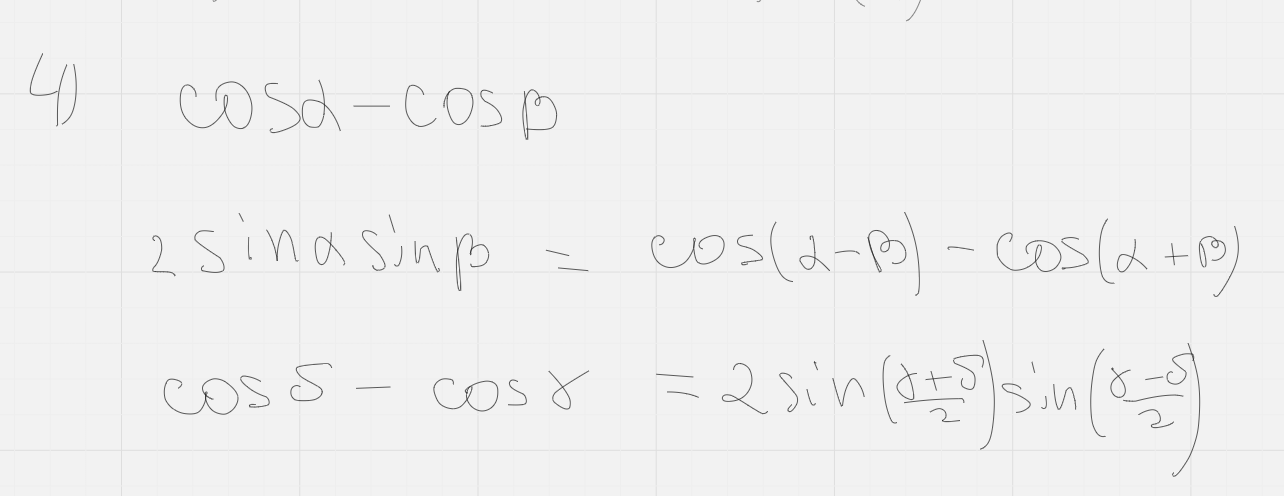 4) cosα - cosβ
2 sinα sinβ = cos(α-β) - cos(α+β)
cos δ - cos γ = 2 sin((γ+δ)/2) sin((γ-δ)/2)